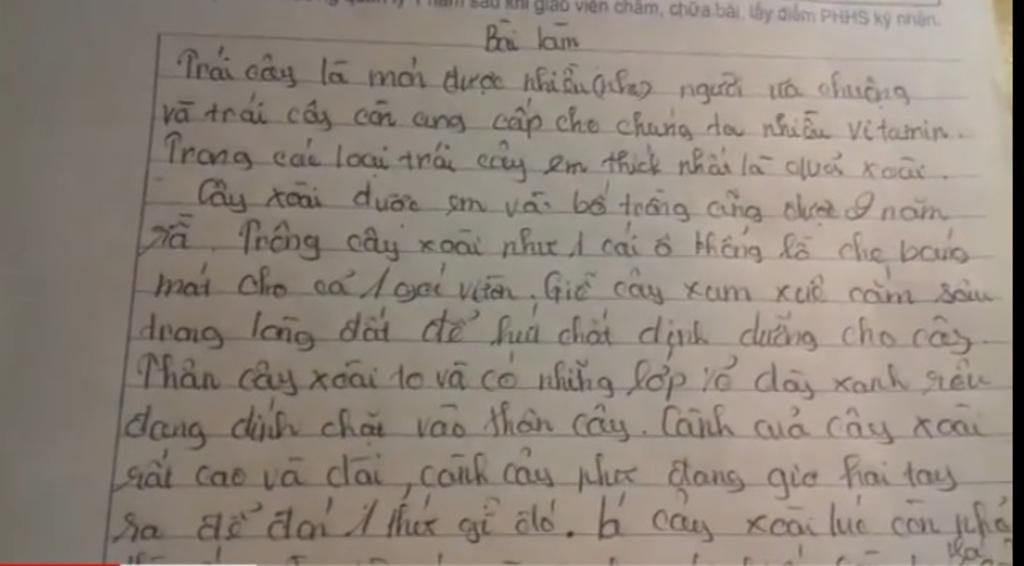 sau khi giáo viên chấm, chữa bài, lấy điểm PHHS ký nhận.
Bài làm
Trái cây là món được nhiều người ưa chuộng
và trái cây còn cung cấp cho chúng ta nhiều vitamin.
Trong các loại trái cây em thích nhất là quả xoài.
Cây xoài được em và bố trồng cũng được 9 năm
rồi. Trông cây xoài như 1 cái ô khổng lồ che bóng
mát cho cả 1 gói vườn. Giễ cây xum xuê cắm sâu
trong lòng đất để hút chất dinh dưỡng cho cây.
Thân cây xoài to và có những lớp vỏ dày xanh rêu
đang dính chặt vào thân cây. Cành cuả cây xoài
rất cao và dài, cành cây như đang giơ hai tay
ra để đón 1 thứ gì đó. lá cây xoài lúc còn nhỏ